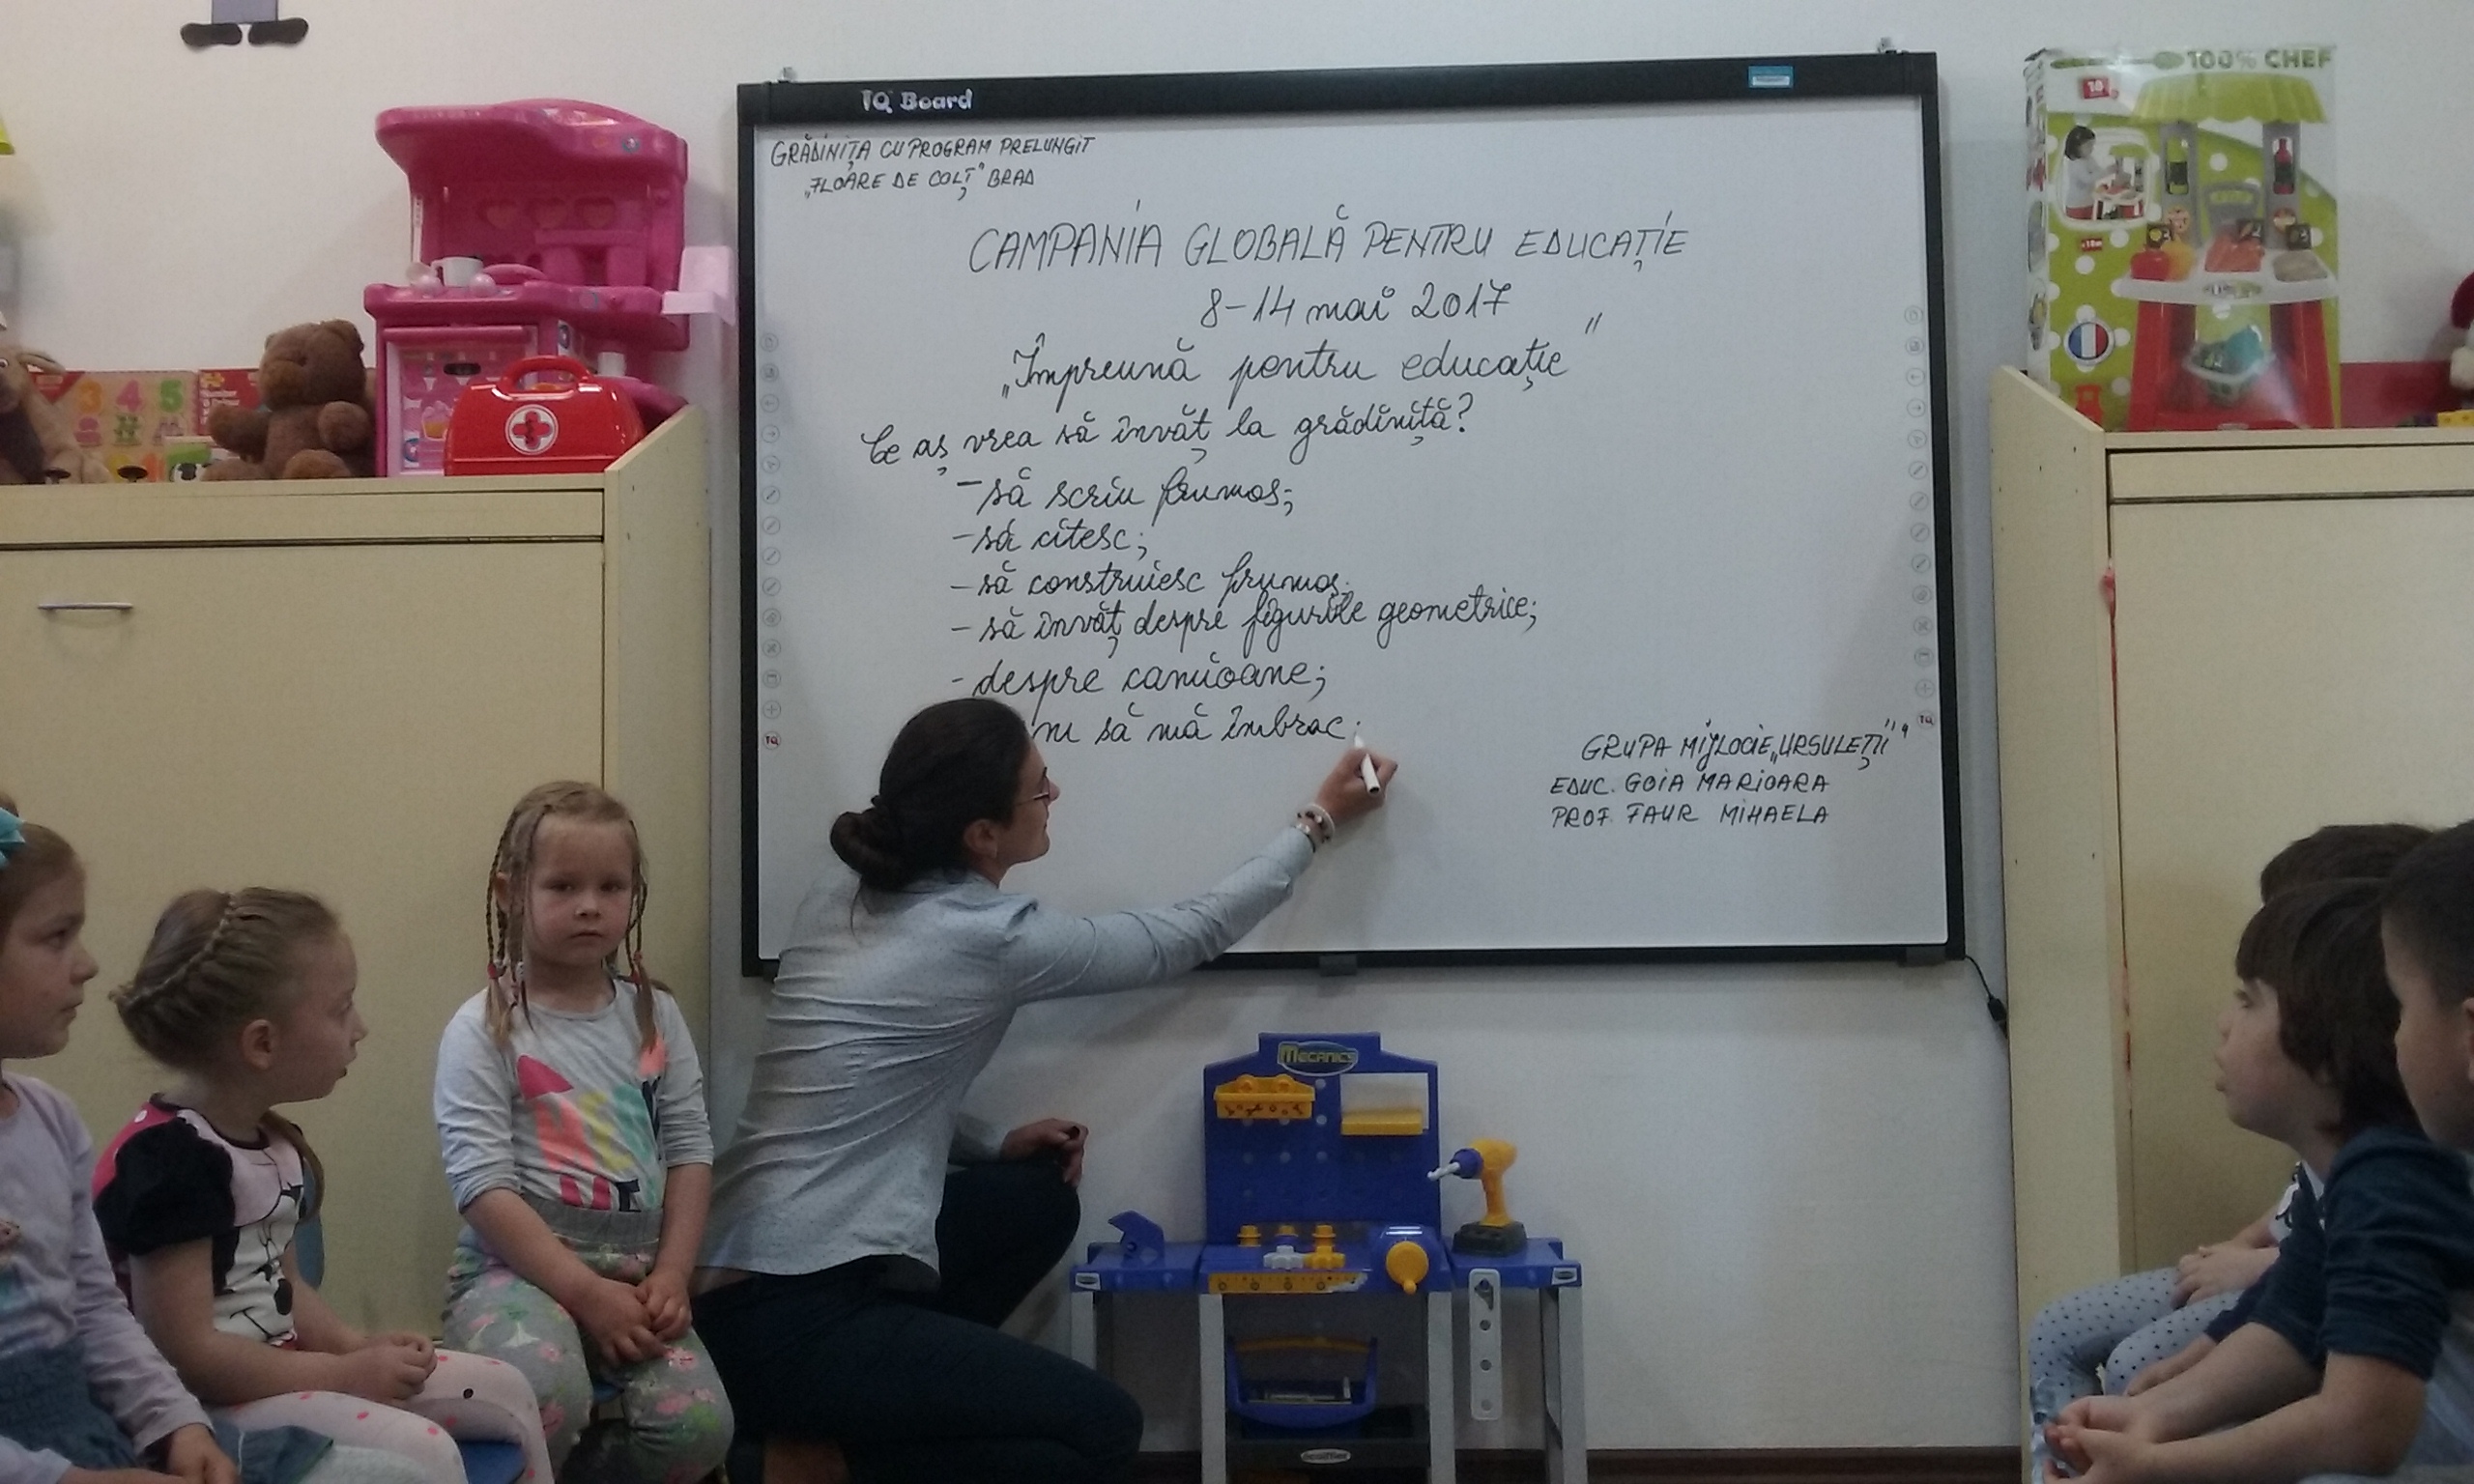 IQ Board
GRĂDINIȚA CU PROGRAM PRELUNGIT
„FLOARE DE COLȚ" BRAD
CAMPANIA GLOBALĂ PENTRU EDUCAȚIE
8-14 mai 2017
„Împreună pentru educație"
Ce aș vrea să învăț la grădiniță?
- să scriu frumos;
- să citesc;
- să construiesc frumos;
- să învăț despre figurile geometrice;
- despre camioane;
să mă îmbrac.
GRUPA MIJLOCIE „URSULEȚII"
EDUC. GOIA MARIOARA
PROF. FAUR MIHAELA
100% CHEF
18
3 4 5
MECANICS